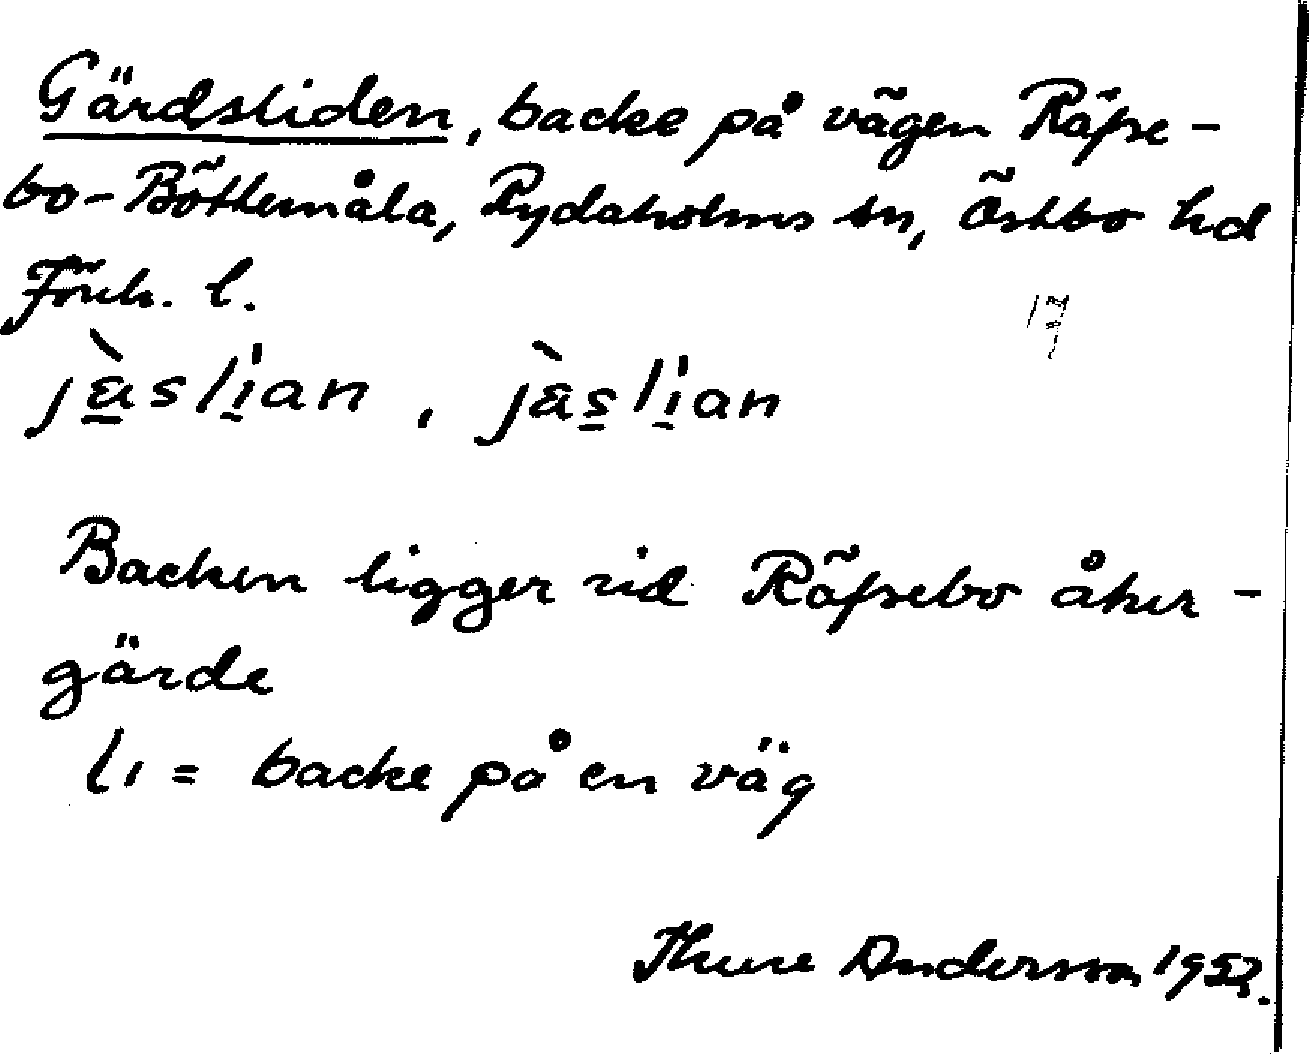 Gärdsliden, backe på vägen Räfse-
bo-Böttlemåla, Rydaholms sn, Östbo hd
Jönk. l.
17
jä̀sli̍an, jä̀sli̍an
Backen ligger vid Räfsebo åker-
gärde
li = backe på en väg
Thure Anderson 1952.